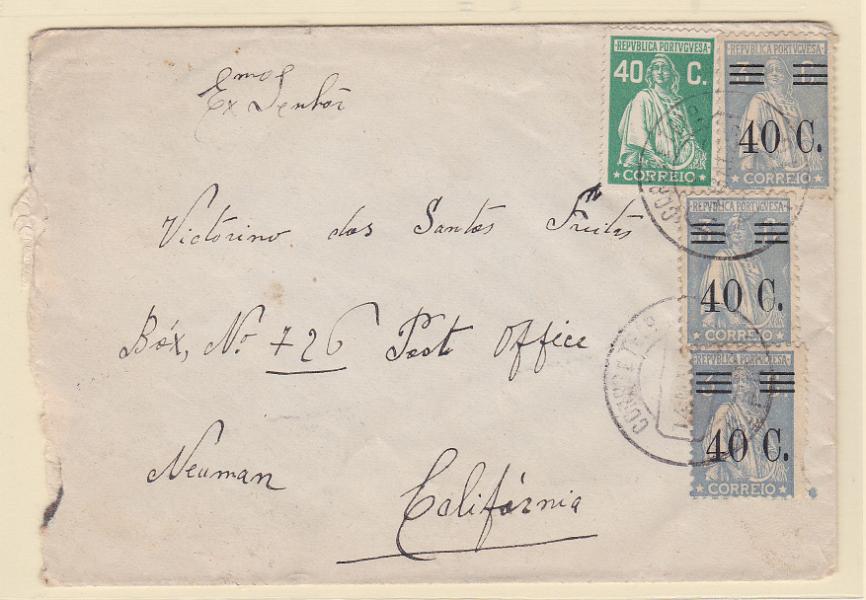 Exmo Senhôr
Victorino dos Santos Freitas
Bóx, No. 726 Post Office
Neuman
Califórnia
REPVBLICA PORTVGVESA
40 C.
CORREIO
REPVBLICA PORTVGVESA
40 C.
CORREIO
REPVBLICA PORTVGVESA
40 C.
CORREIO
REPVBLICA PORTVGVESA
40 C.
CORREIO